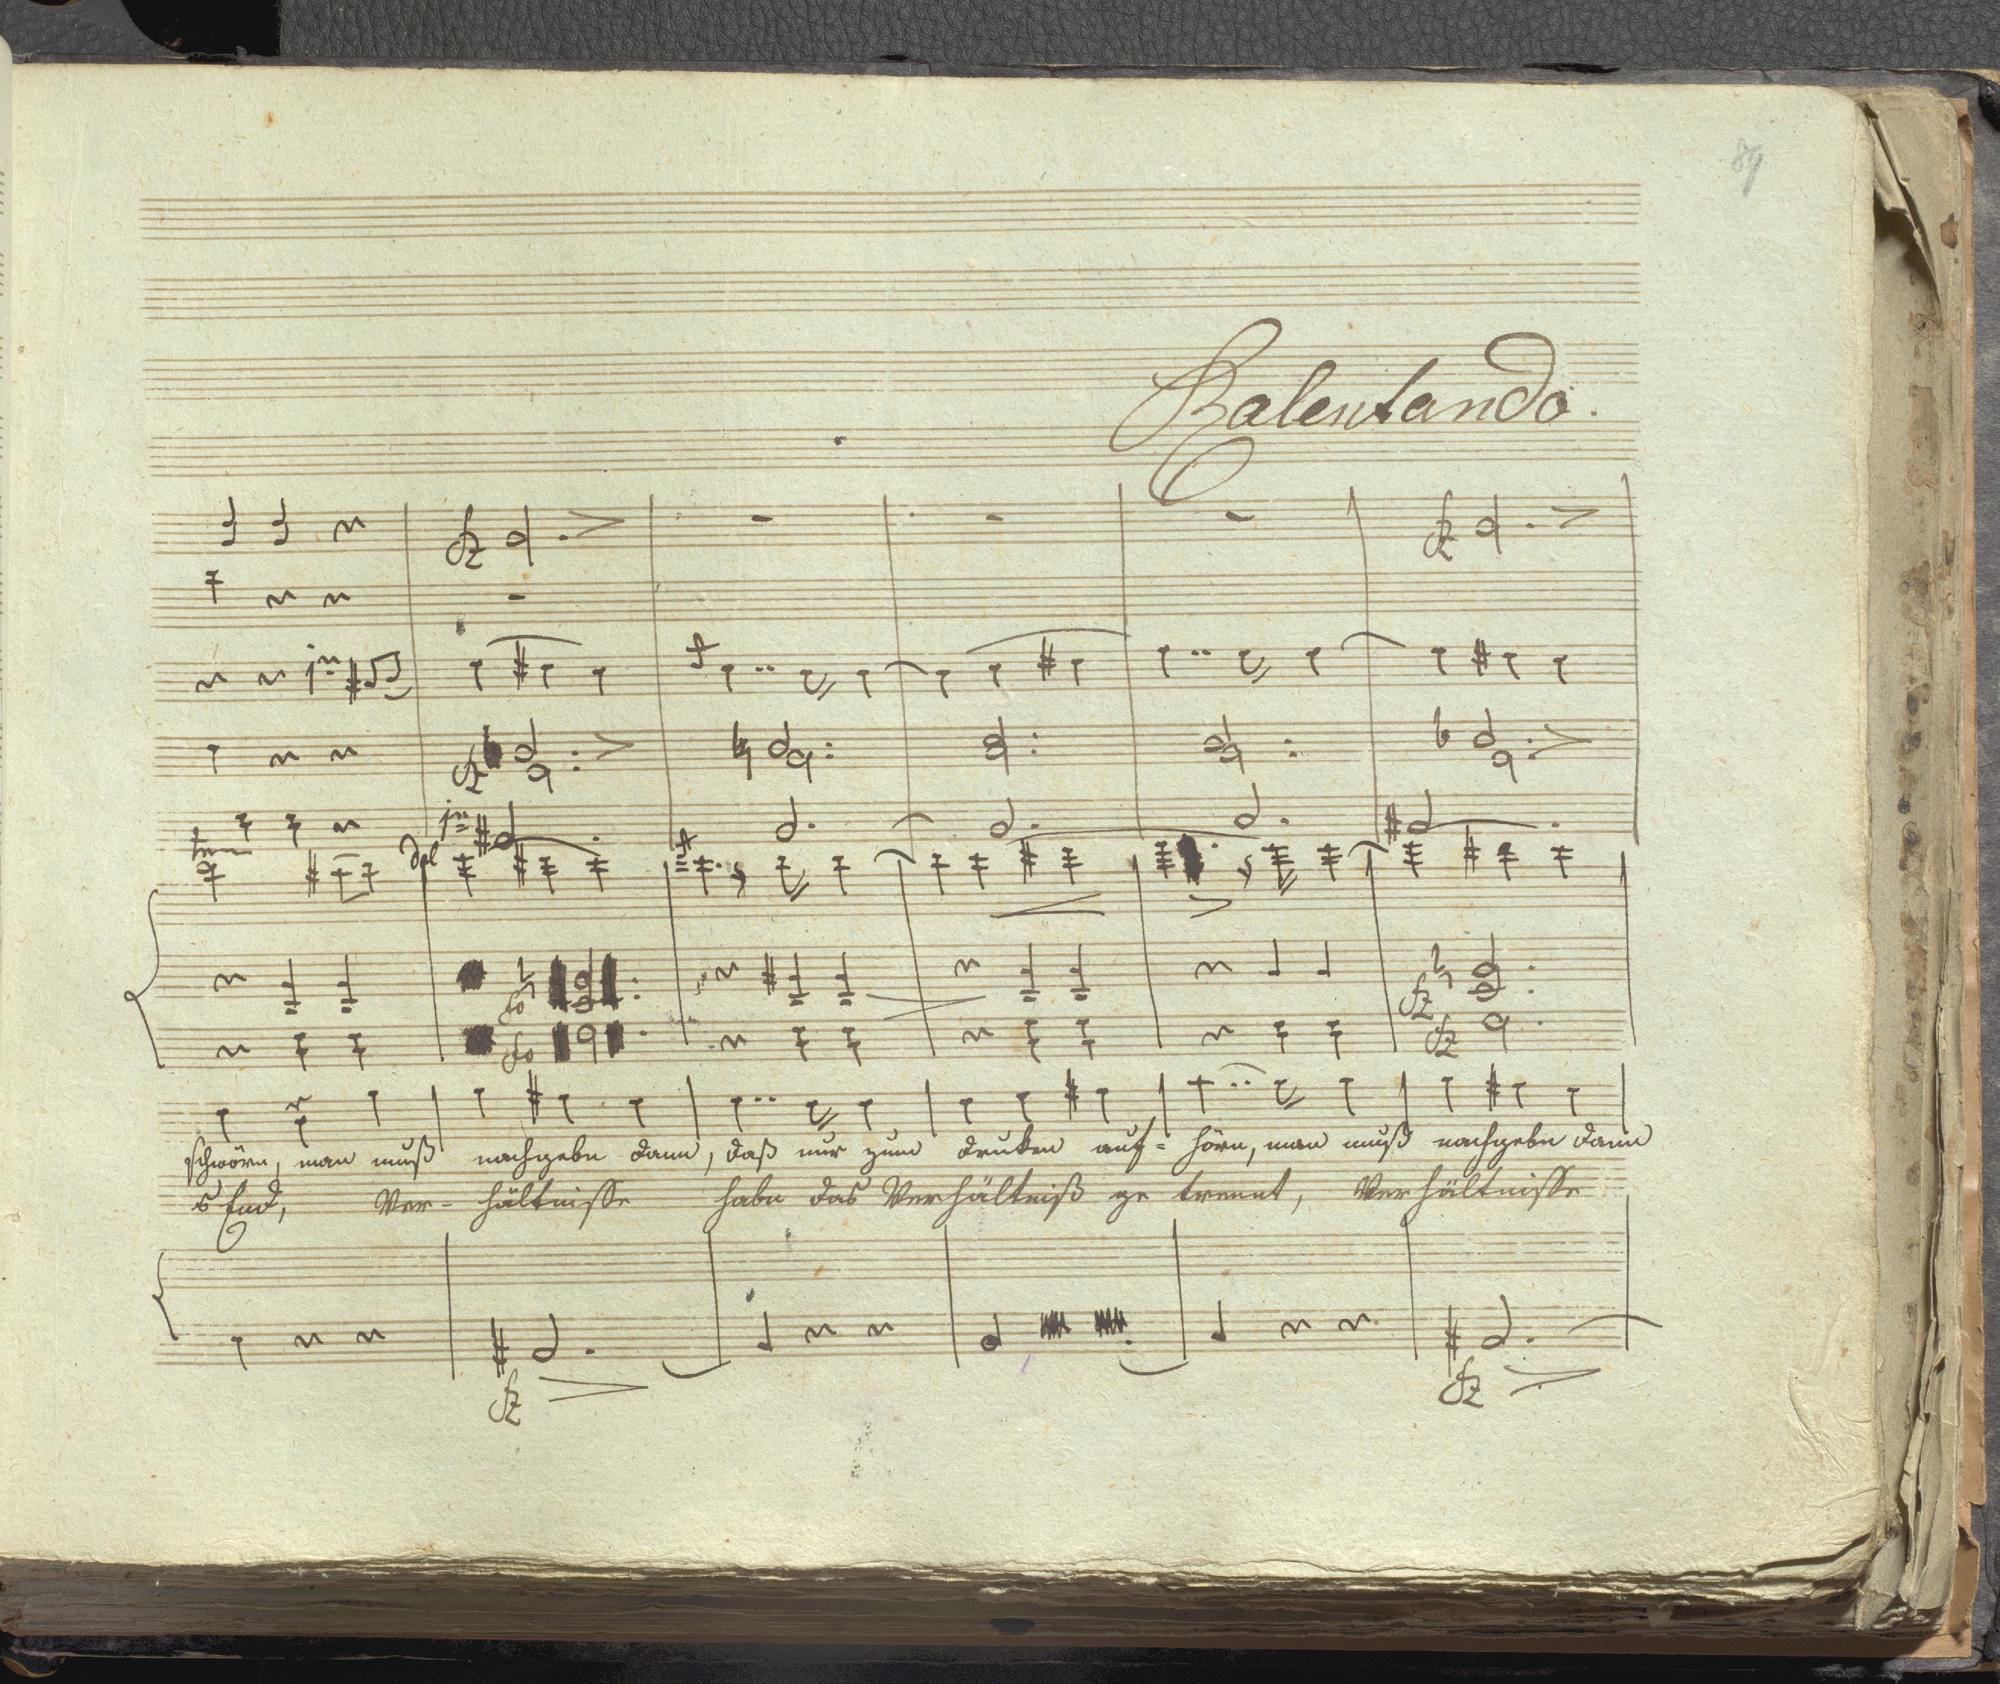 89
Ralentando.
fz fz
fz
dol
fo fz
fo fz
schwörn, man muß nachgebn dann, daß nur zum druken auf= hörn, man muß nachgebn dann
s End, Ver- hältnisse habn das Verhältniß ge trennt, Verhältnisse
fz fz